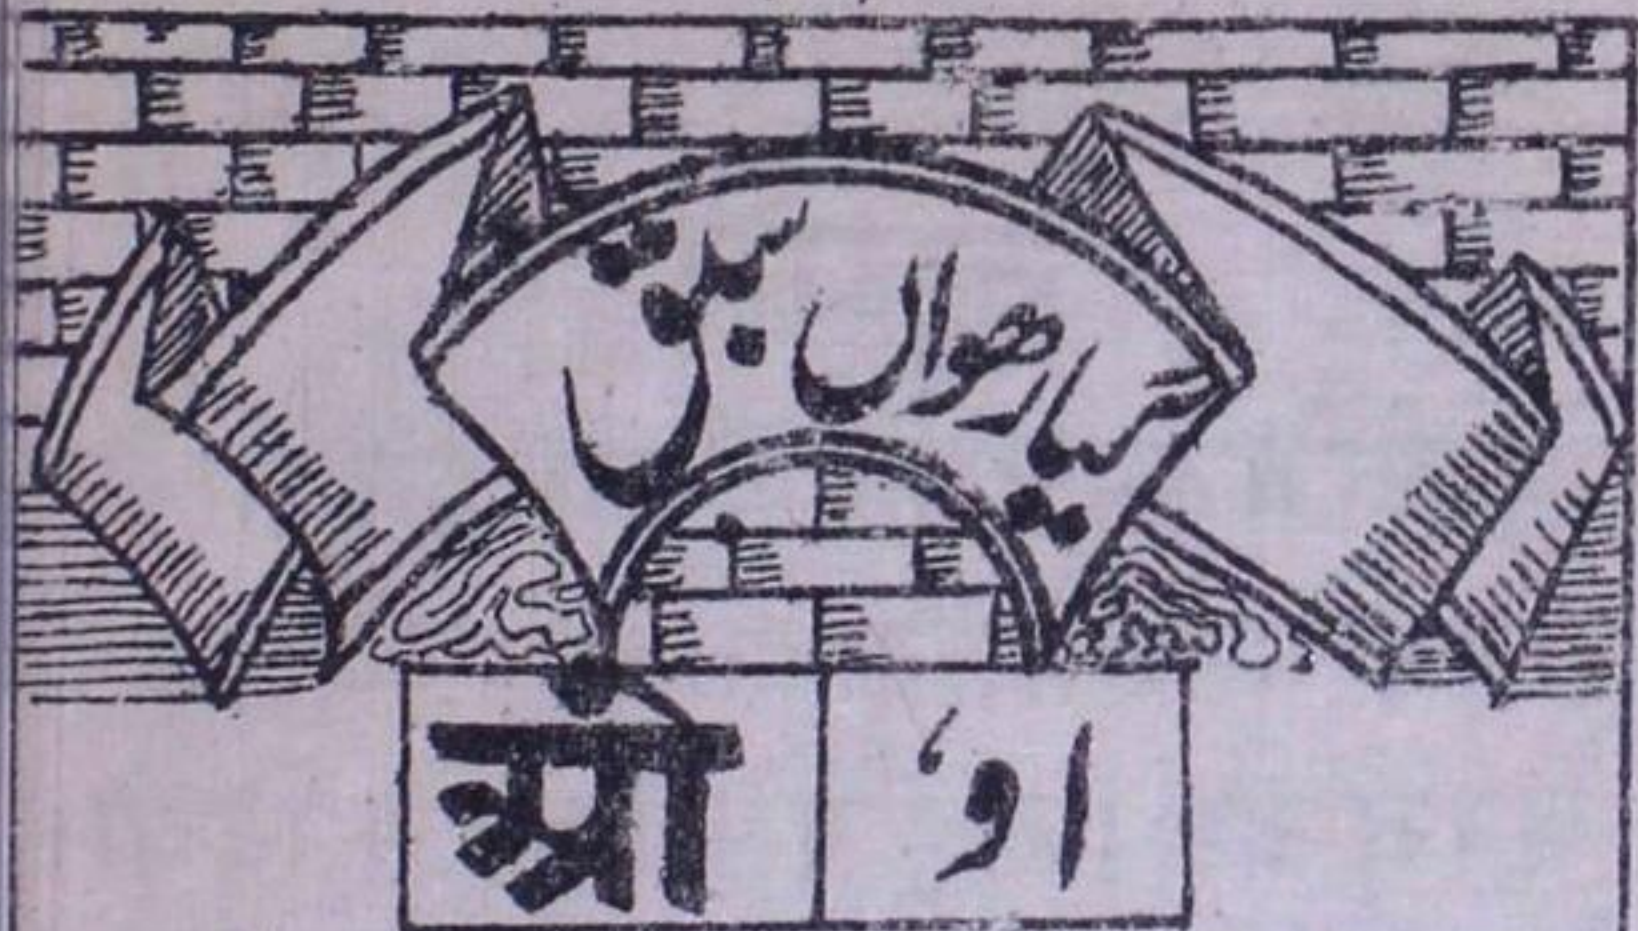 گیارھواں سبق
او‘ ओ